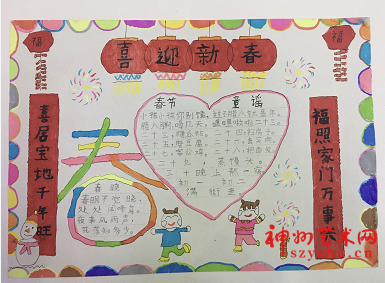 福
喜迎新春
福
喜居宝地千年旺
福照家门万事
春节 童谣
小孩小孩你别馋,过了腊八就是年。
腊八粥,喝几天,哩哩啦啦二十三。
二十三,糖瓜粘,二十四,扫房子。
二十五,磨豆腐,
二十七,宰公鸡,二十八,把面发,
二十九,蒸馒头。
三十晚上熬一宿,
初一
满街走
春
春晓
春眠不觉晓,
处处闻啼鸟。
夜来风雨声,
花落知多少。
神州艺术网